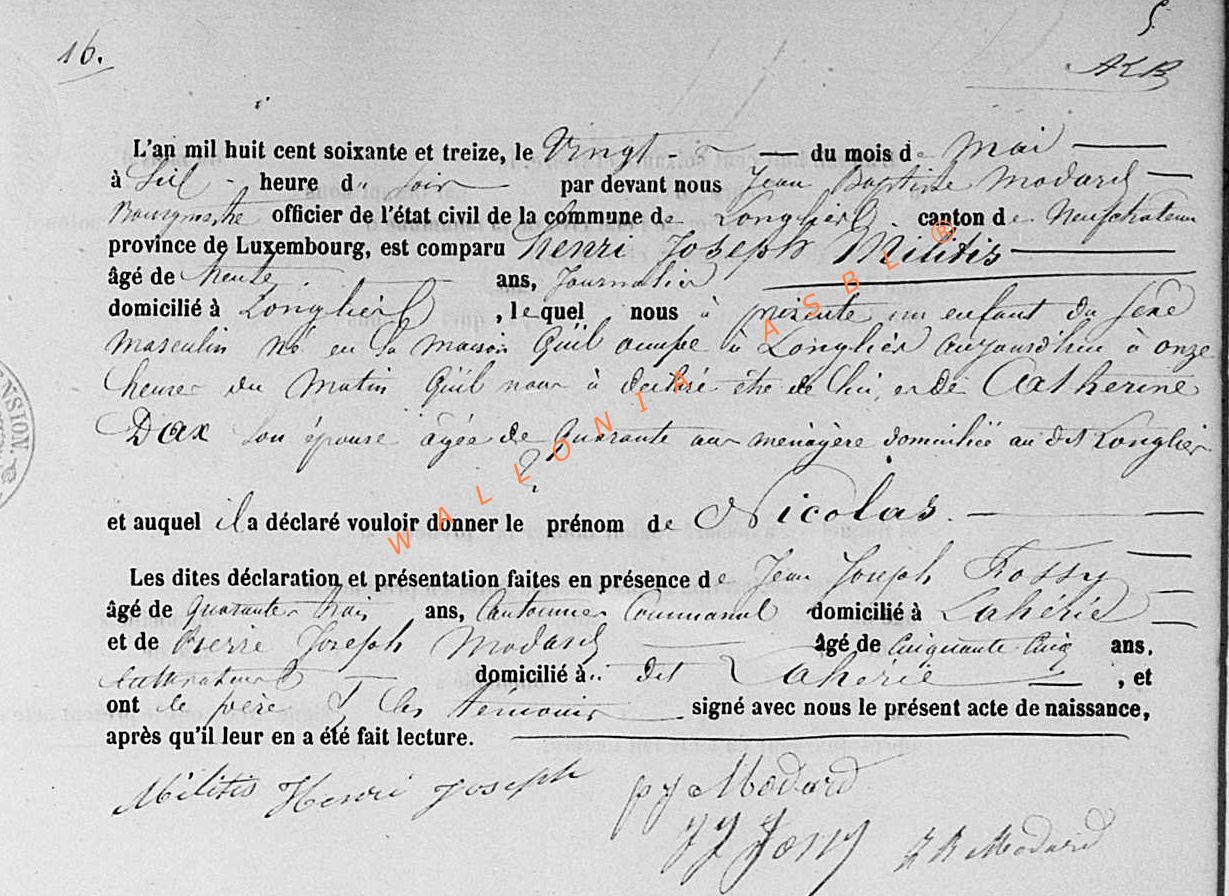 5
16.
AKB
L'an mil huit cent soixante et treize, le Vingt du mois de Mai
à Six heure du soir par devant nous Jean Baptiste Modard
Bourgmestre officier de l'état civil de la commune de Longlier canton de Neufchateau
province de Luxembourg, est comparu Henri Joseph Militis
âgé de trente ans, Journalier
domicilié à Longlier, lequel nous à présenté un enfant du sexe
masculin né en la maison Qu'il occupe à Longlier Aujourd'hui à onze
heures du Matin Qu'il nous à déclaré être de lui, et de Catherine
Dax son épouse âgée de Quarante ans ménagère domiciliée au dit Longlier
et auquel il a déclaré vouloir donner le prénom de Nicolas.
Les dites déclaration et présentation faites en présence de Jean Joseph
âgé de Quarante trois ans, Cantonnier Communal domicilié à Lahérie
et de Pierre Joseph Modard âgé de Cinquante Cinq ans,
Cultivateur domicilié à dit Lahérie, et
ont le père & les témoins signé avec nous le présent acte de naissance,
après qu'il leur en a été fait lecture.
Militis Henri Joseph pj Modard
JJ JB Modard
WALLONIA ASBL ®
NSION.